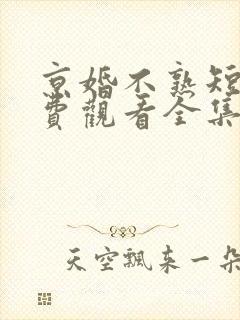 京婚不熟短
費觀看全集
天空飄来一朵